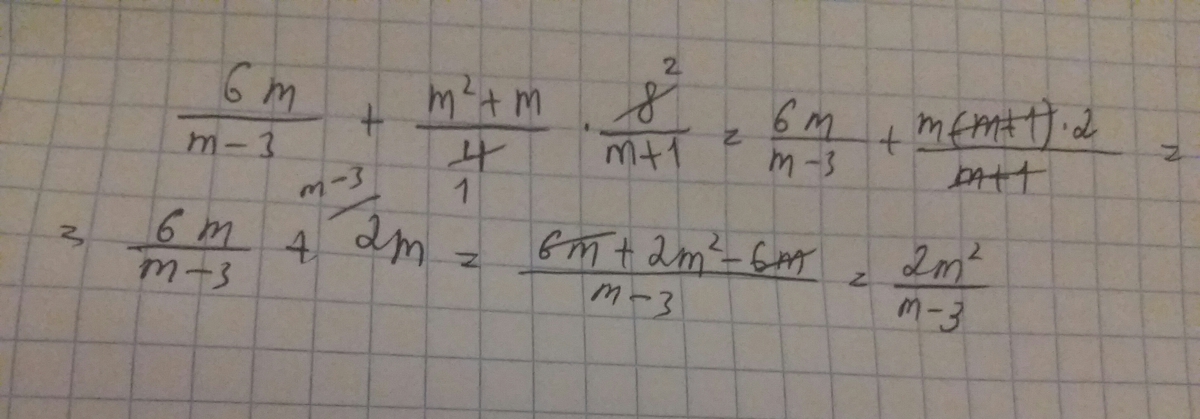 6m/(m-3) + (m²+m)/4 1 · 8 2/(m+1) = 6m/(m-3) + m(m+1)·2/(m+1) =
= 6m/(m-3) + m-3/ 2m = (6m+2m²-6m)/(m-3) = 2m²/(m-3)